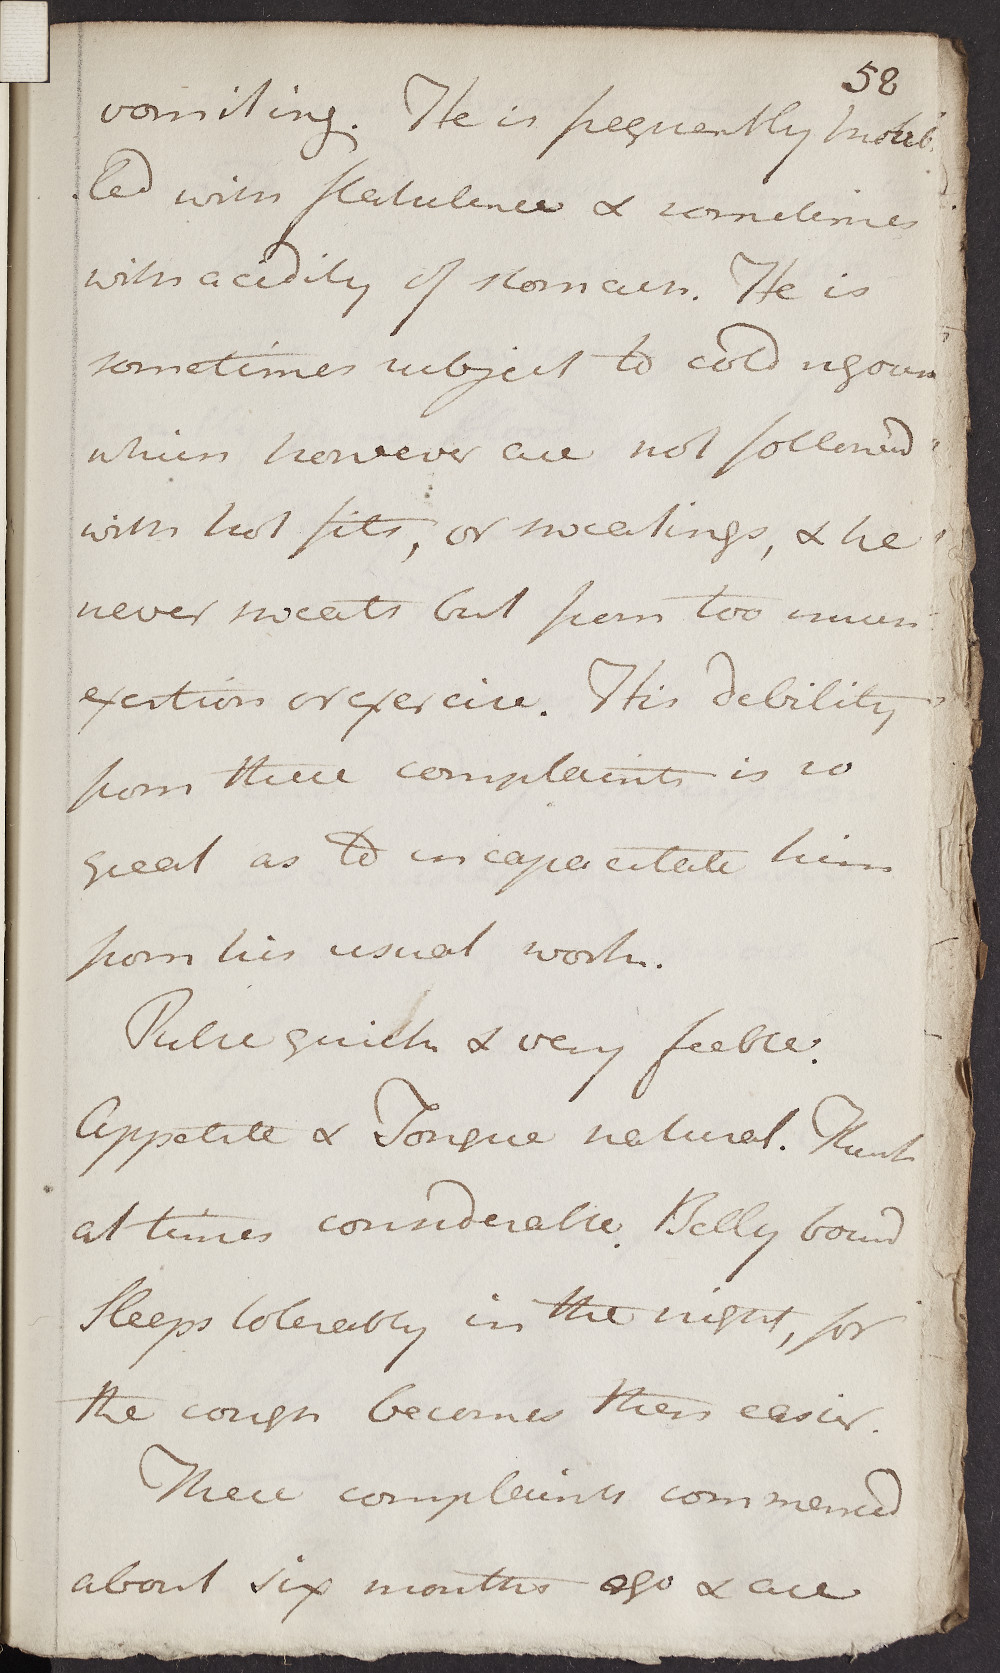 58
vomiting. He is frequently troub-
-led with flatulence & sometimes
with acidity of stomach. He is
sometimes subject to cold rigours
which however are not followed
with hot fits, or sweatings, & he
never sweats but from too much
exertion or exercise. His debility
from these complaints is so
great as to incapacitate him
from his usual work.
Pulse quick & very feeble.
Appetite & Tongue natural. Thirst
at times considerable. Belly bound
Sleeps tolerably in the night, for
the cough becomes then easier.
These complaints commenced
about six months ago & are